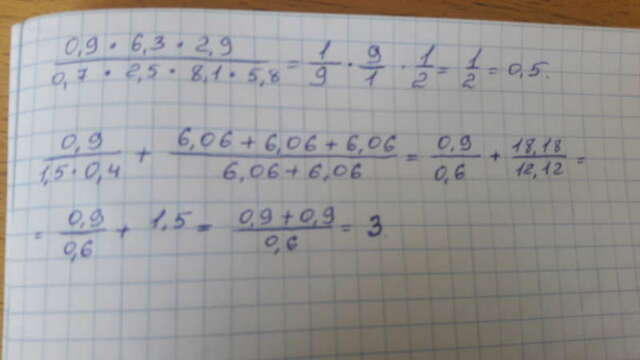 0,9 · 6,3 · 2,9 / 0,7 · 2,5 · 8,1 · 5,8 = 1/9 · 9/1 · 1/2 = 1/2 = 0,5.
0,9 / 1,5 · 0,4 + 6,06 + 6,06 + 6,06 / 6,06 + 6,06 = 0,9/0,6 + 18,18/12,12 =
= 0,9/0,6 + 1,5 = 0,9 + 0,9 / 0,6 = 3